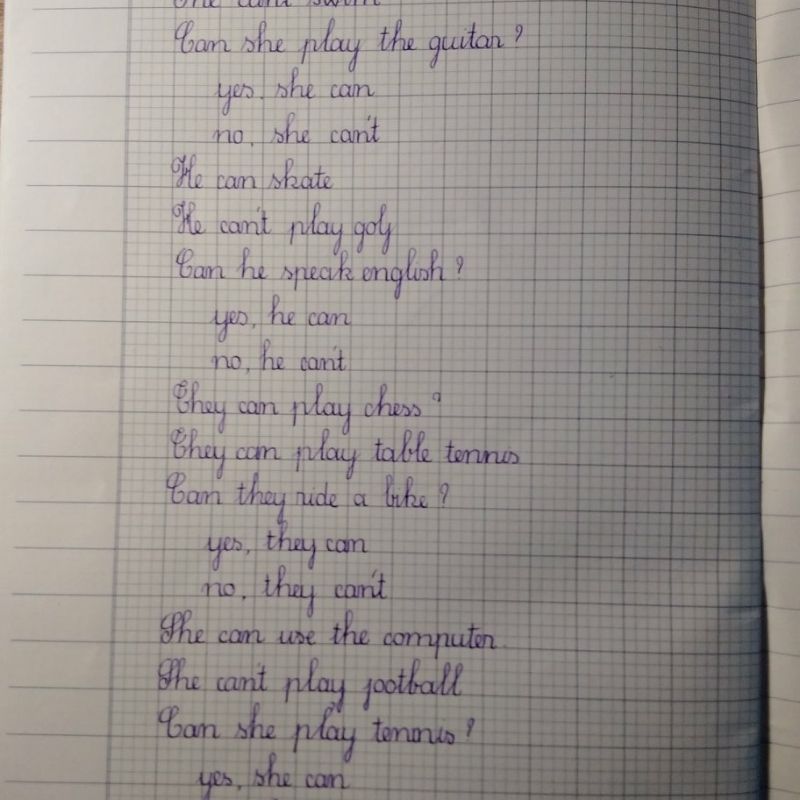 She can't swim
Can she play the guitar?
yes, she can
no, she can't
He can skate
He can't play golf
Can he speak english?
yes, he can
no, he can't
They can play chess?
They can play table tennis
Can they ride a bike?
yes, they can
no, they can't
She can use the computer.
She can't play football
Can she play tennis?
yes, she can